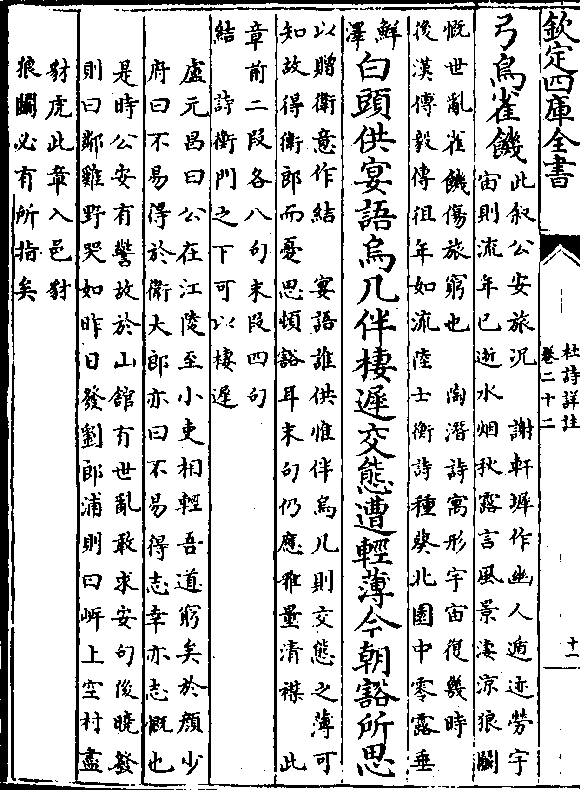 欽定四庫全書
杜詩詳註
卷二十二
十一
弓鳥雀饑
此叙公安旅况　謝軒墀作幽人遁迹勞宇
宙則流年已逝水烟秋露言風景凄涼狼鬭
慨世亂雀饑傷旅窮也　陶潛詩寓形宇宙復幾時
後漢傳毅傳徂年如流陸士衡詩種葵北園中零露垂
鮮
澤
白頭供宴語烏几伴棲遲交態遭輕薄今朝豁所思
以贈衛意作結　宴語誰供惟伴烏几則交態之薄可
知故得衛郎而憂思頓豁耳末句仍應雅量清襟　此
章前二段各八句末段四句
結　詩衡門之下可以棲遲
盧元昌曰公在江陵至小吏相輕吾道窮矣於顔少
府曰不易得於衛大郎亦曰不易得志幸亦志慨也
是時公安有警故於山館有世亂敢求安句後曉發
則曰鄰雞野哭如昨日發劉郎浦則曰岸上空村盡
豺虎此章入邑豺
狼鬭必有所指矣